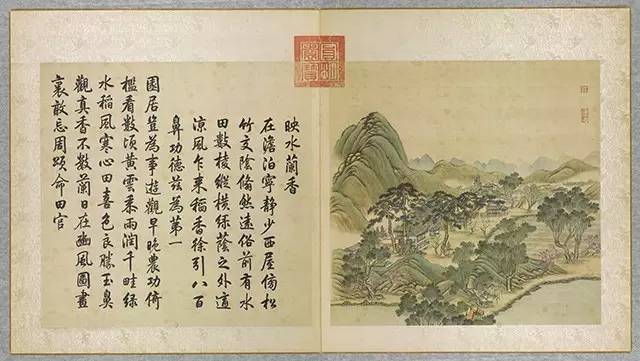 圓明園寶
映水蘭香
在澹泊寧靜少西屋傍松
竹交陰翛然遠俗前有水
田數棱縱橫綠蔭之外適
涼風乍來稻香徐引八百
鼻功德茲為第一
園居豈為事遊觀早晚農功倚
檻看數頃黃雲黍雨潤千畦綠
水稻風寒心田喜色良勝玉鼻
觀真香不數蘭日在豳風圖畫
裏敢忘周頌命田官